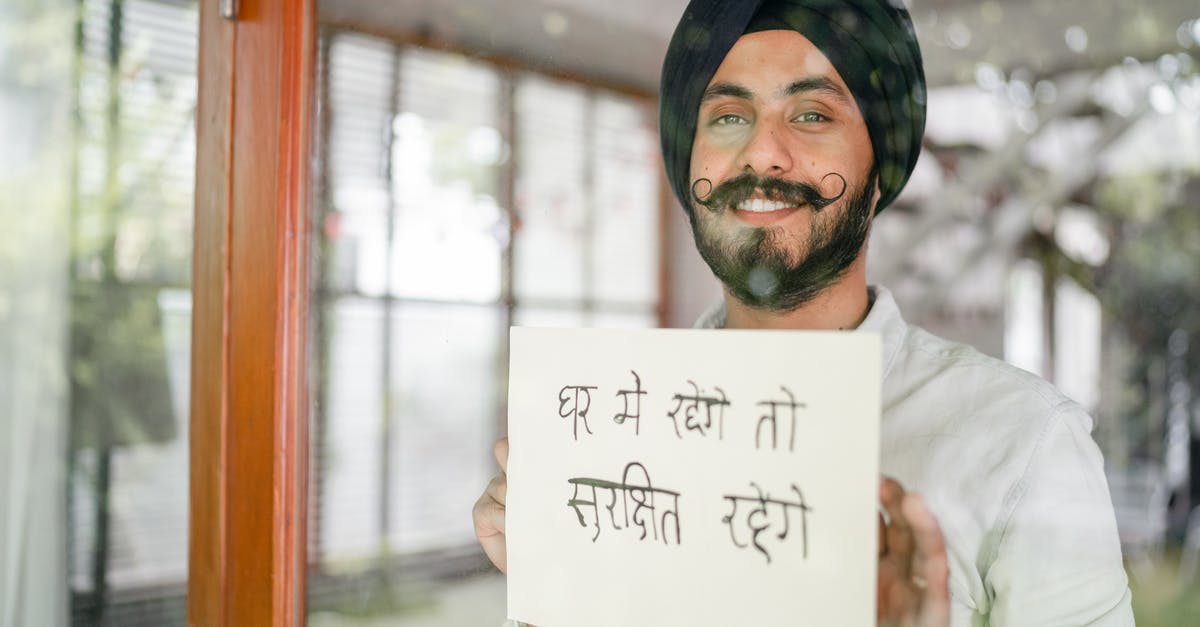 घर मे रहेंगे तो
सुरक्षित रहेगे